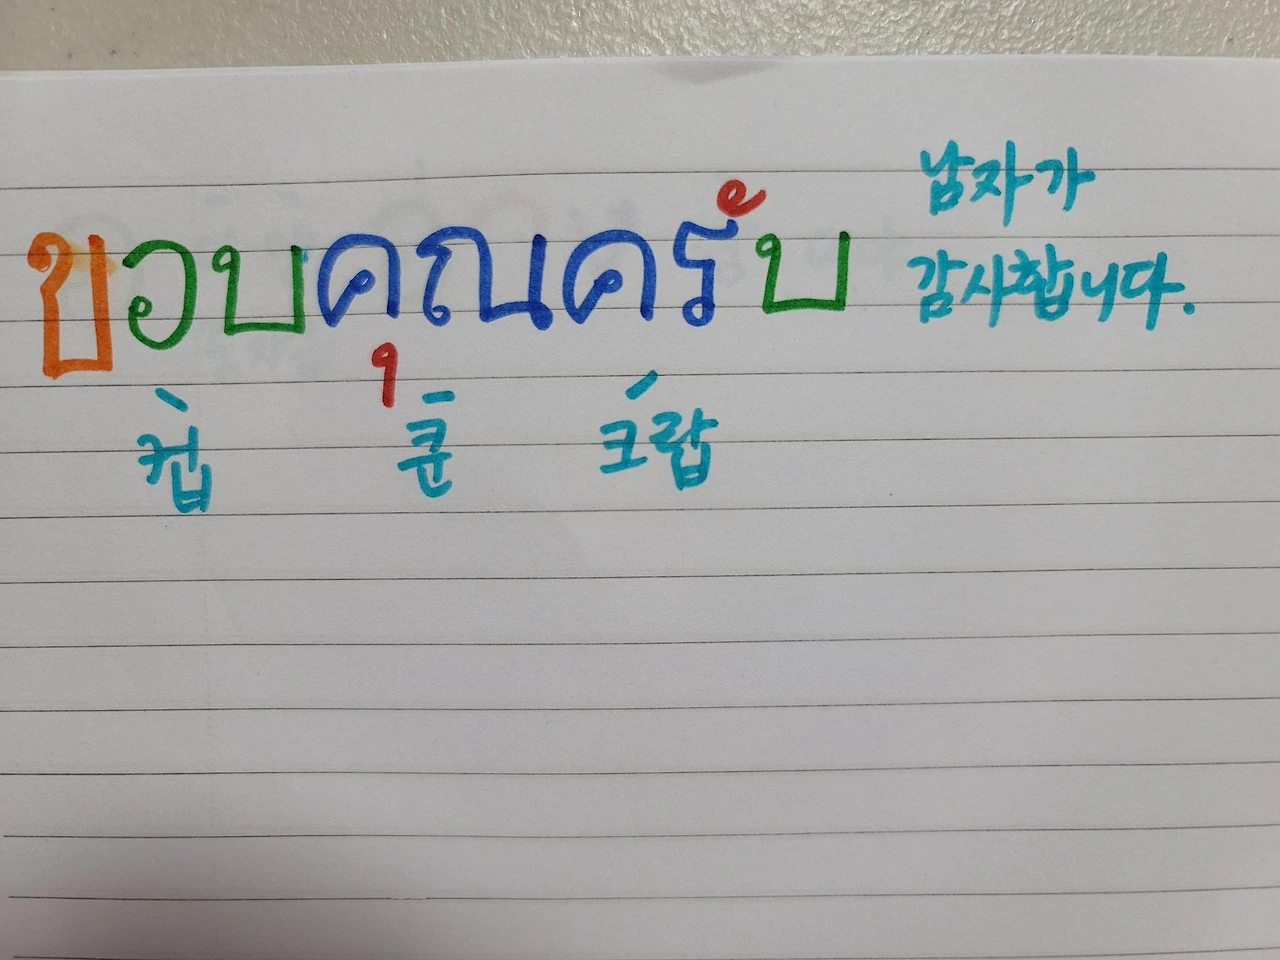 ขอบคุณครับ
남자가
감사합니다.
컵 쿤 크랍